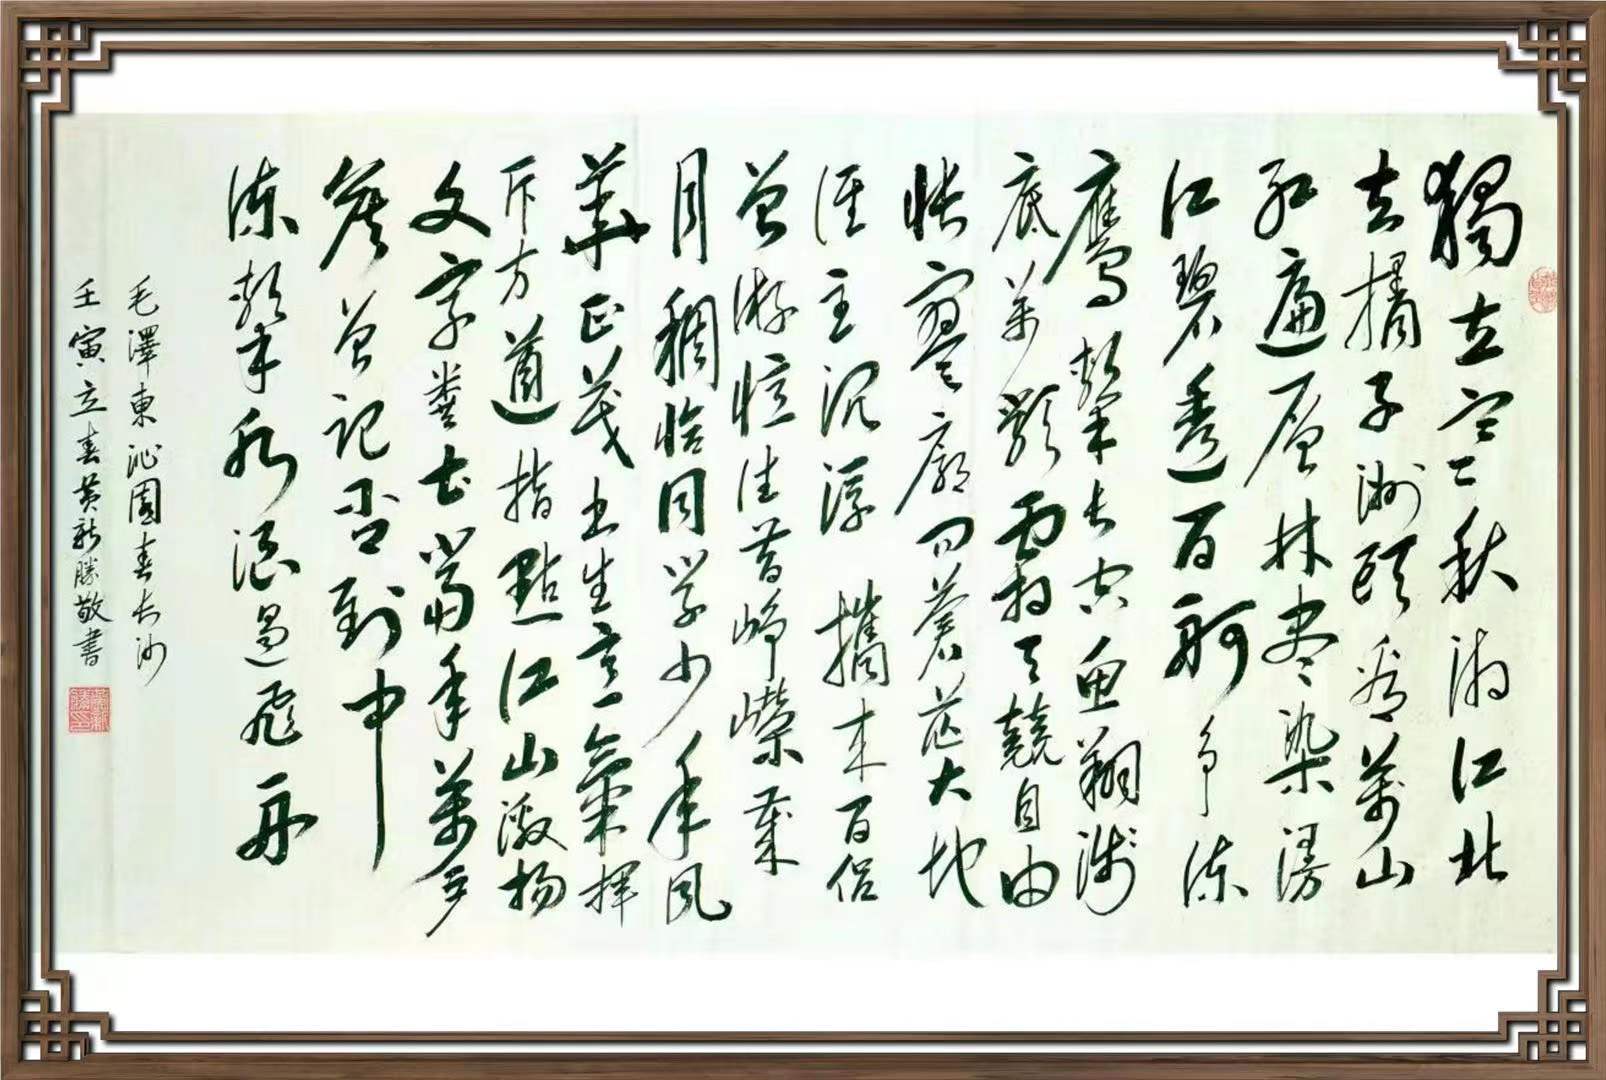 獨立寒秋湘江北
去橘子洲頭看萬山
紅遍層林盡染漫
江碧透百舸爭流
鷹擊長空魚翔淺
底萬類霜天競自由
悵寥廓問蒼茫大地
誰主沉浮 攜來百侶
曾游憶往昔崢嶸歲
月稠恰同學少年風
華正茂書生意氣揮
斥方遒指點江山激揚
文字糞土當年萬戶
侯曾記否到中
流擊水浪遏飛舟
毛澤東沁園春長沙
壬寅立春黃新勝敬書